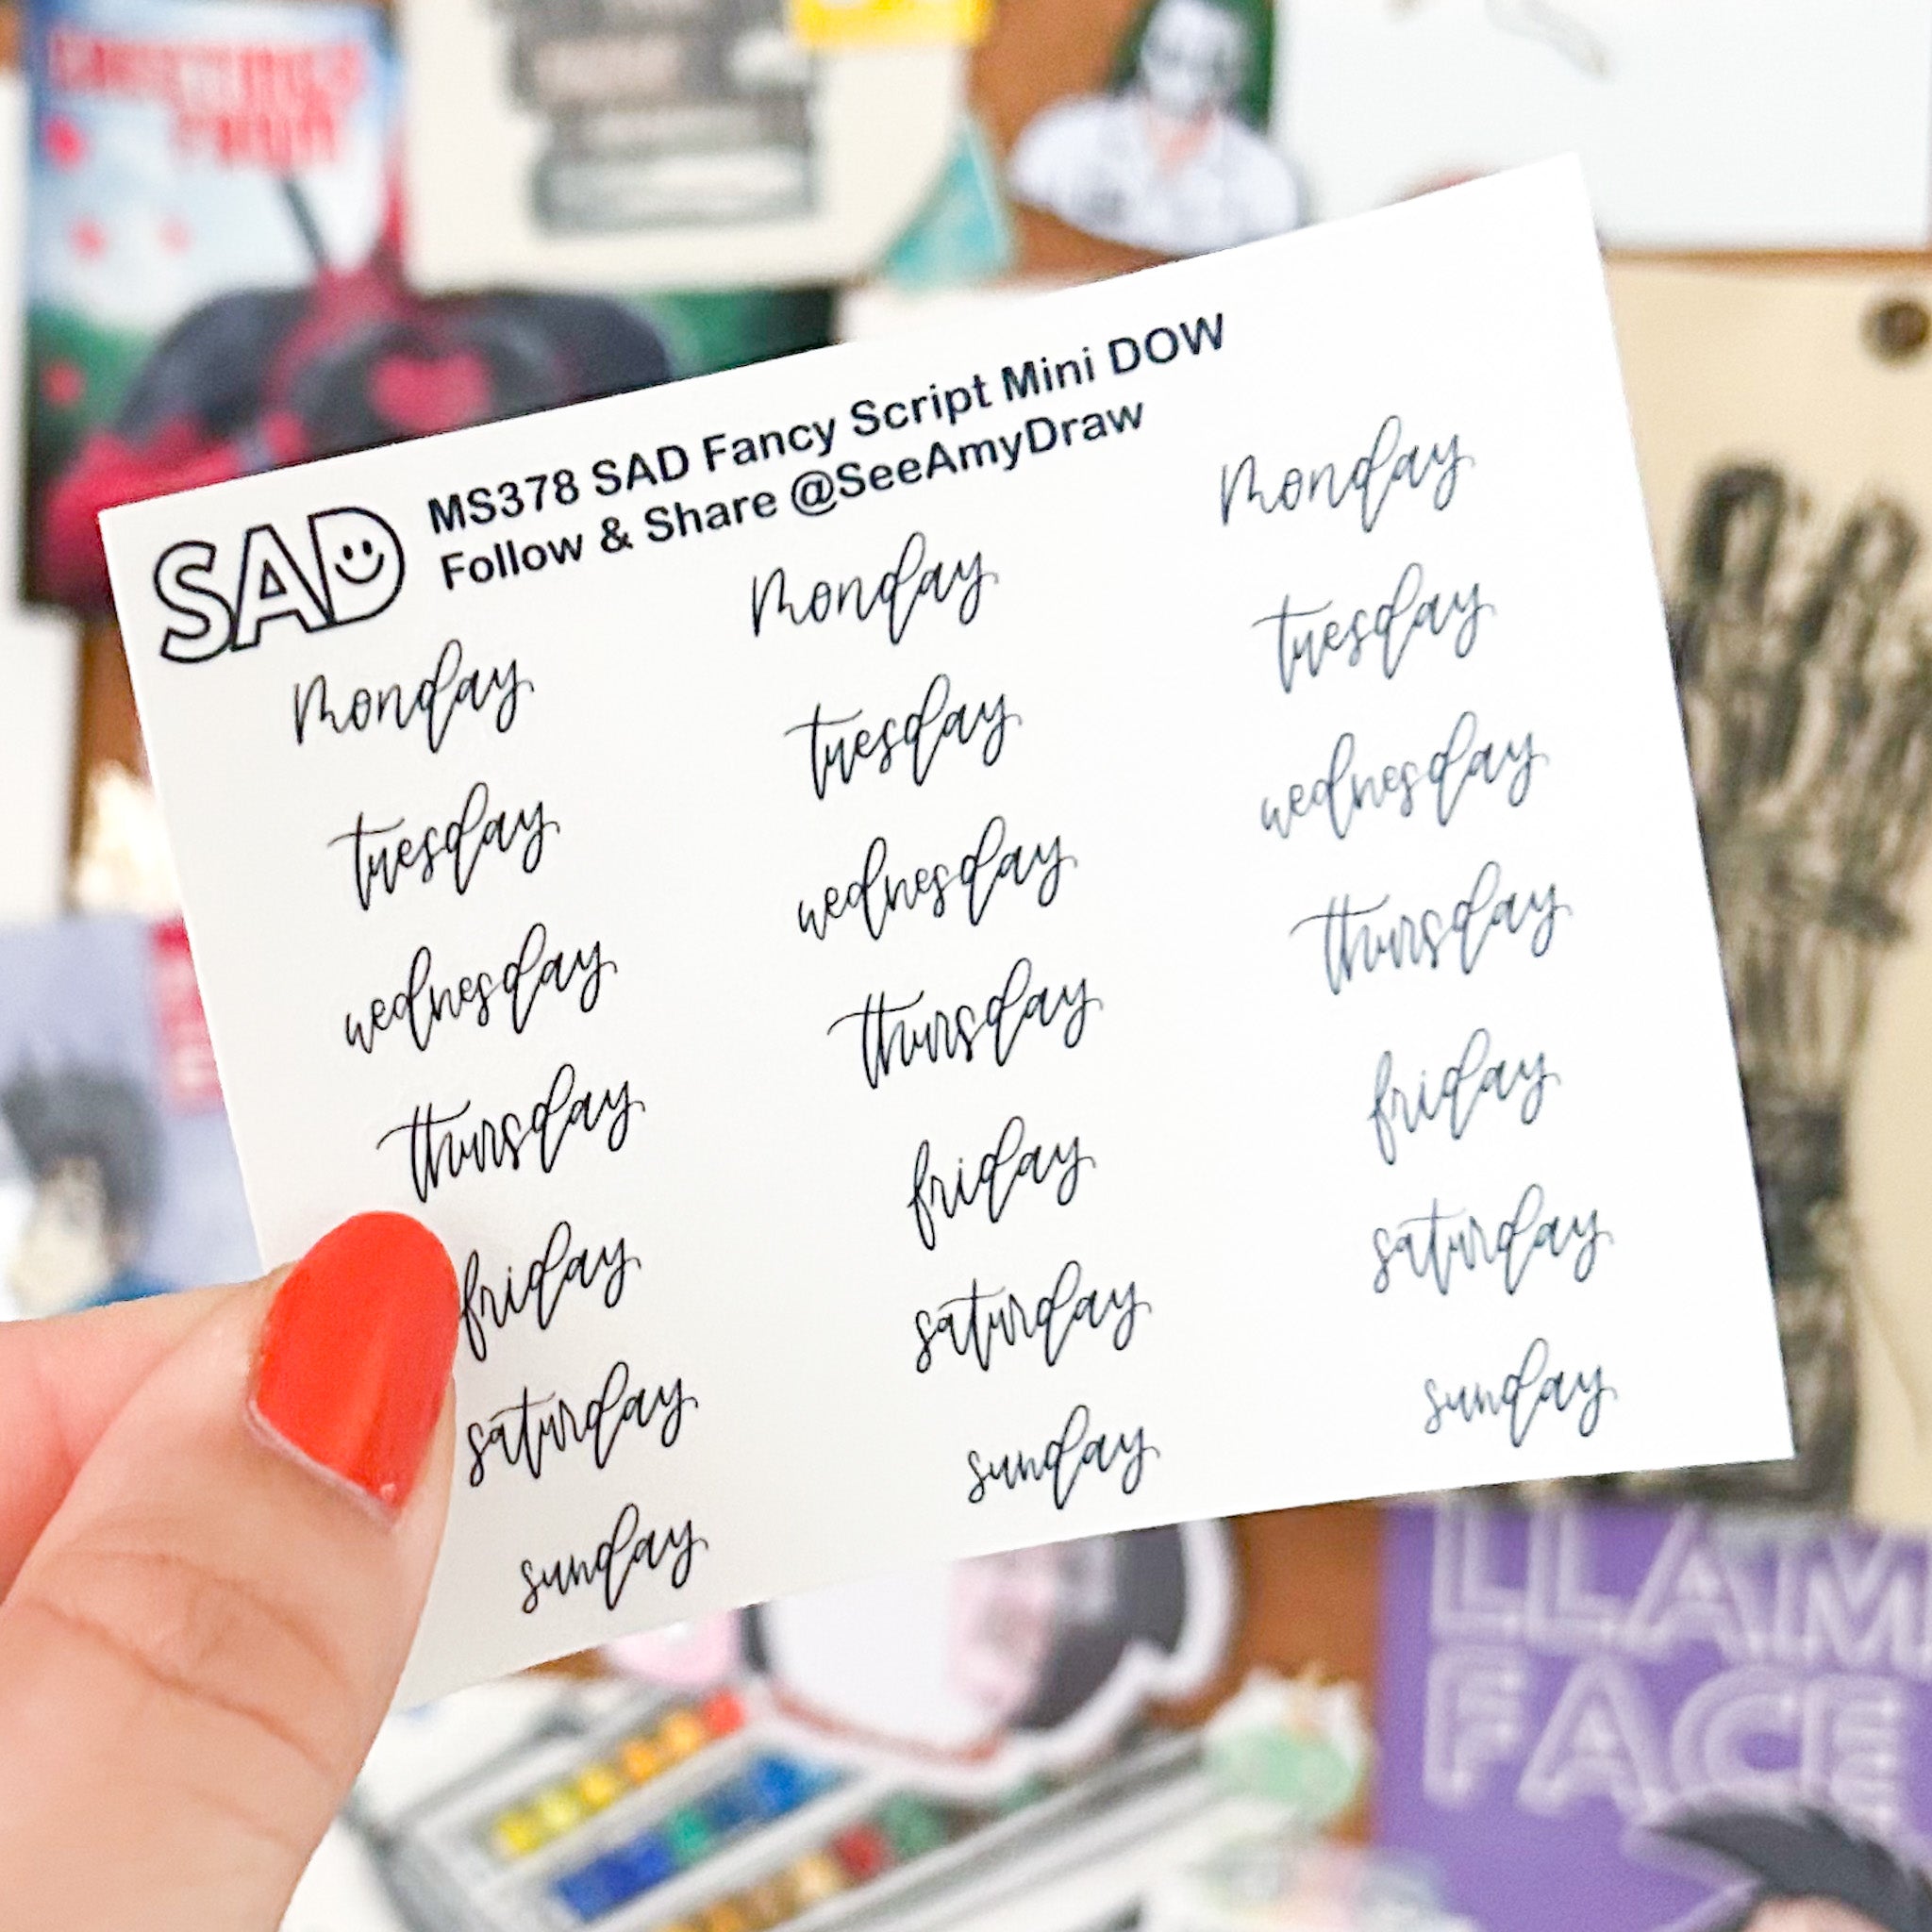 SAD
MS378 SAD Fancy Script Mini DOW
Follow & Share @SeeAmyDraw
monday
tuesday
wednesday
thursday
friday
saturday
sunday
monday
tuesday
wednesday
thursday
friday
saturday
sunday
monday
tuesday
wednesday
thursday
friday
saturday
sunday
LLAM
FACE